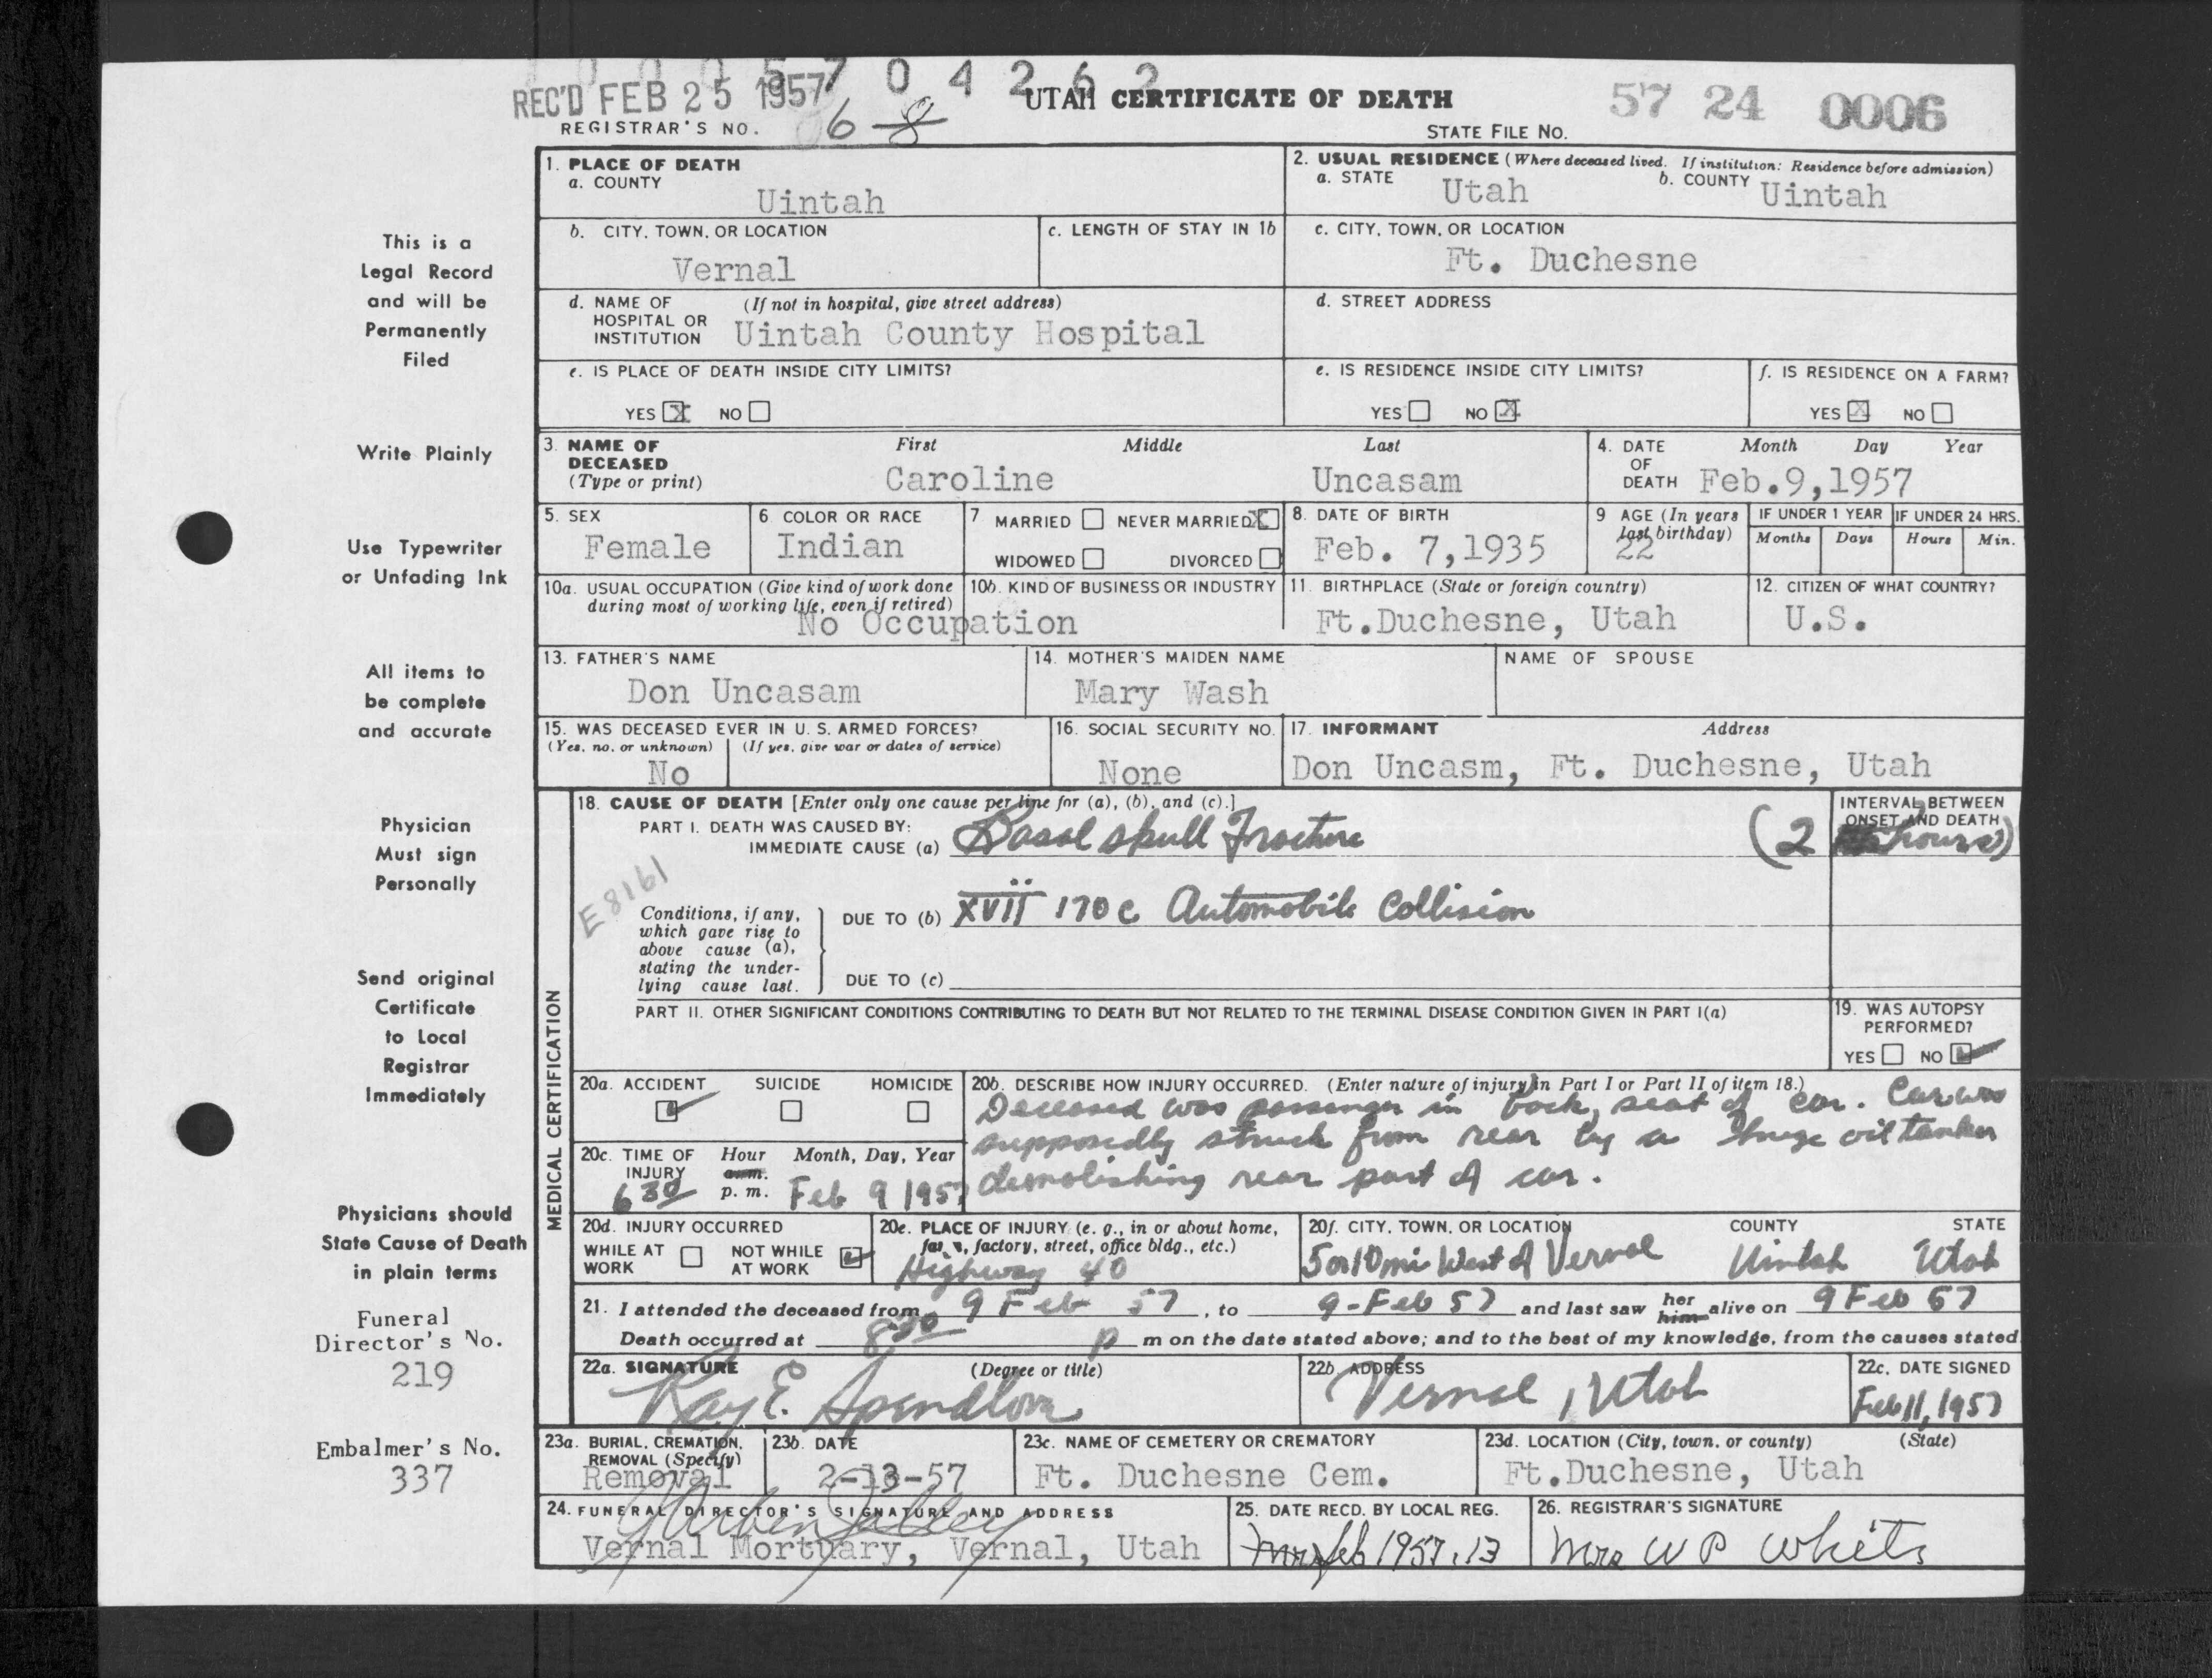 1 0 0 0 5 7 0 4 2 6 2
REC'D FEB 25 1957 UTAH CERTIFICATE OF DEATH 57 24 0006
REGISTRAR'S NO. 6 8 STATE FILE NO.
1. PLACE OF DEATH
a. COUNTY
Uintah
2. USUAL RESIDENCE (Where deceased lived. If institution: Residence before admission)
a. STATE Utah b. COUNTY Uintah
b. CITY, TOWN, OR LOCATION
Vernal
c. LENGTH OF STAY IN 1b
c. CITY, TOWN, OR LOCATION
Ft. Duchesne
d. NAME OF (If not in hospital, give street address)
HOSPITAL OR
INSTITUTION Uintah County Hospital
d. STREET ADDRESS
e. IS PLACE OF DEATH INSIDE CITY LIMITS?
YES X NO
e. IS RESIDENCE INSIDE CITY LIMITS?
YES NO X
f. IS RESIDENCE ON A FARM?
YES X NO
3. NAME OF First Middle Last
DECEASED
(Type or print) Caroline Uncasam
4. DATE Month Day Year
OF
DEATH Feb.9,1957
5. SEX
Female
6. COLOR OR RACE
Indian
7 MARRIED NEVER MARRIED X
WIDOWED DIVORCED
8. DATE OF BIRTH
Feb. 7,1935
9 AGE (In years
last birthday)
22
IF UNDER 1 YEAR
Months Days
IF UNDER 24 HRS.
Hours Min.
10a. USUAL OCCUPATION (Give kind of work done
during most of working life, even if retired)
10b. KIND OF BUSINESS OR INDUSTRY
No Occupation
11. BIRTHPLACE (State or foreign country)
Ft.Duchesne, Utah
12. CITIZEN OF WHAT COUNTRY?
U.S.
13. FATHER'S NAME
Don Uncasam
14. MOTHER'S MAIDEN NAME
Mary Wash
NAME OF SPOUSE
15. WAS DECEASED EVER IN U. S. ARMED FORCES?
(Yes, no, or unknown) (If yes, give war or dates of service)
No
16. SOCIAL SECURITY NO.
None
17. INFORMANT Address
Don Uncasm, Ft. Duchesne, Utah
MEDICAL CERTIFICATION
18. CAUSE OF DEATH [Enter only one cause per line for (a), (b), and (c).]
PART I. DEATH WAS CAUSED BY:
IMMEDIATE CAUSE (a) Basal skull Fracture
INTERVAL BETWEEN
ONSET AND DEATH
(2 hours)
E8161
Conditions, if any,
which gave rise to
above cause (a),
stating the under-
lying cause last.
DUE TO (b) XVII 170c Automobile Collision
DUE TO (c)
PART II. OTHER SIGNIFICANT CONDITIONS CONTRIBUTING TO DEATH BUT NOT RELATED TO THE TERMINAL DISEASE CONDITION GIVEN IN PART I(a)
19. WAS AUTOPSY
PERFORMED?
YES NO
20a. ACCIDENT SUICIDE HOMICIDE
20b. DESCRIBE HOW INJURY OCCURRED. (Enter nature of injury in Part I or Part II of item 18.)
Deceased was passenger in back seat of car. Car was
supposedly struck from rear by a huge oil tanker
demolishing rear part of car.
20c. TIME OF Hour Month, Day, Year
INJURY a.m.
630 p. m. Feb 9 1957
20d. INJURY OCCURRED
WHILE AT NOT WHILE
WORK AT WORK
20e. PLACE OF INJURY (e. g., in or about home,
farm, factory, street, office bldg., etc.)
Highway 40
20f. CITY, TOWN, OR LOCATION COUNTY STATE
5 or 10 mi West of Vernal Uintah Utah
21. I attended the deceased from 9 Feb 57, to 9-Feb 57 and last saw her him alive on 9 Feb 57
Death occurred at 830 p m on the date stated above; and to the best of my knowledge, from the causes stated
22a. SIGNATURE (Degree or title)
Ray E. Spendlove
22b. ADDRESS
Vernal, Utah
22c. DATE SIGNED
Feb 11, 1957
23a. BURIAL, CREMATION,
REMOVAL (Specify)
Removal
23b. DATE
2-13-57
23c. NAME OF CEMETERY OR CREMATORY
Ft. Duchesne Cem.
23d. LOCATION (City, town, or county) (State)
Ft.Duchesne, Utah
24. FUNERAL DIRECTOR'S SIGNATURE AND ADDRESS
Vernal Mortuary, Vernal, Utah
25. DATE RECD. BY LOCAL REG.
feb 1957.13
26. REGISTRAR'S SIGNATURE
Mrs W P White
This is a
Legal Record
and will be
Permanently
Filed
Write Plainly
Use Typewriter
or Unfading Ink
All items to
be complete
and accurate
Physician
Must sign
Personally
Send original
Certificate
to Local
Registrar
Immediately
Physicians should
State Cause of Death
in plain terms
Funeral
Director's No.
219
Embalmer's No.
337